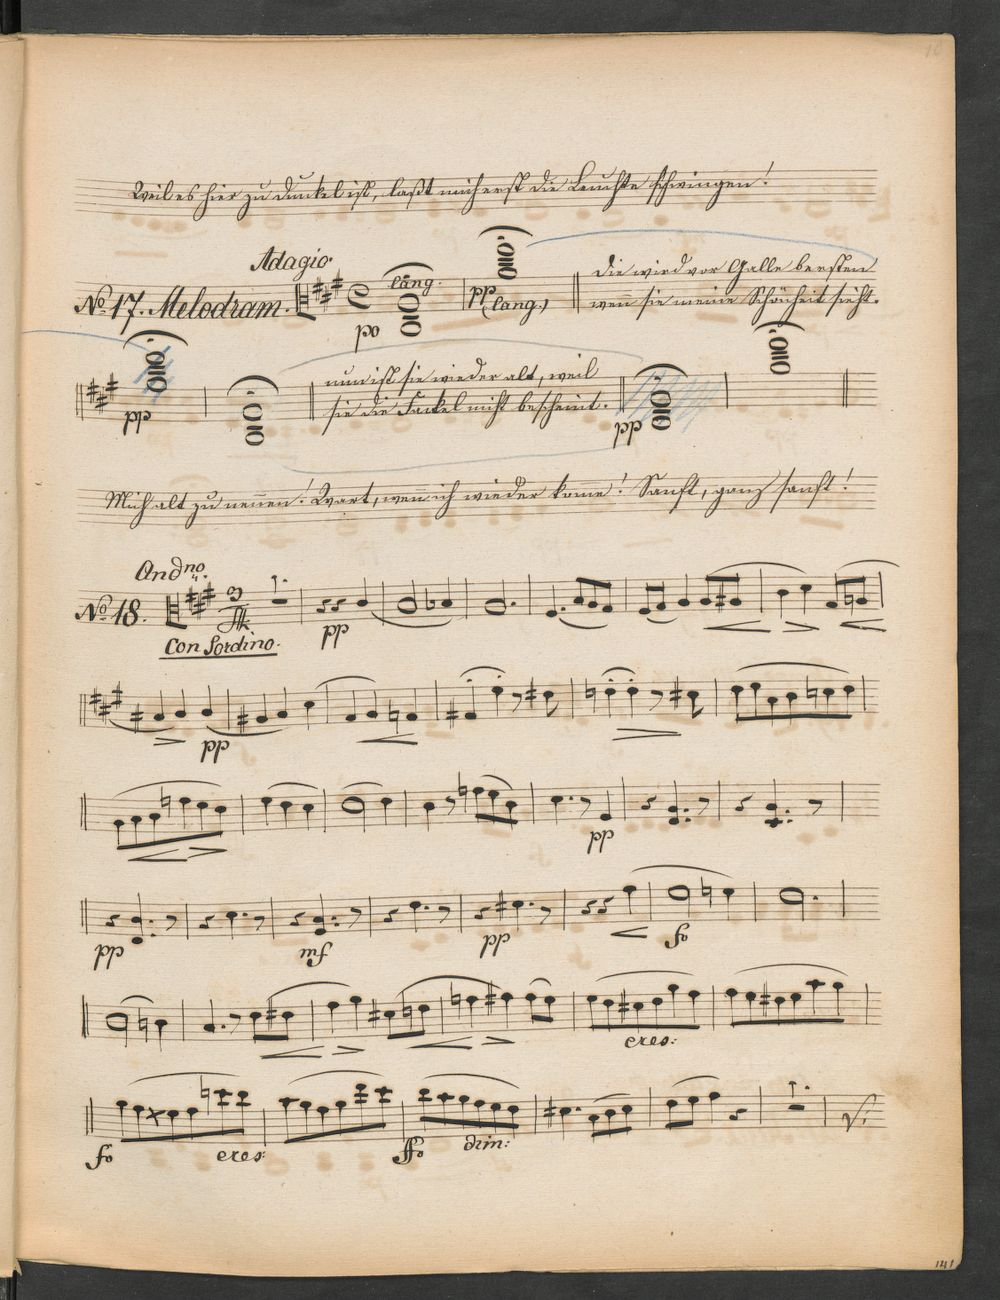 10
Weil es hier zu dunkel ist, laßt mich erst die Leuchte schwingen!
Adagio.
No. 17. Melodram.
lang.
po
pp
(lang.)
Die wird vor Galle bersten
wenn sie meine Schönheit sieht.
pp
nun ist sie wieder alt, weil
sie die Fackel nicht bescheint.
pp
Mich alt zu nennen! Wart, wenn ich wieder kome! Sanft, ganz sanft!
Andno.
No. 18.
Con Sordino.
pp
pp
pp
pp
mf
pp
fo
cres:
fo
cres:
ffo
dim:
V:
141